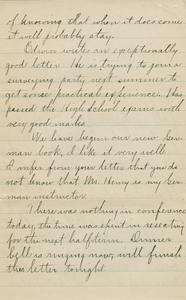 of knowing that when it does come
it will probably stay.
Edwin writes an exceptionally
good letter. He is trying to join a
surveying party next summer to
get some practical experience. He
passed the High School exams with
very good marks.
We have begun our new Ger-
man book, I like it very well.
I infer from your letter that you do
not know that Mr. Henry is my Ger-
man instructor.
There was nothing in conference
today, the time was spent in reseating
for the next half term. Dinner
bell is ringing now, will finish
this letter tonight.